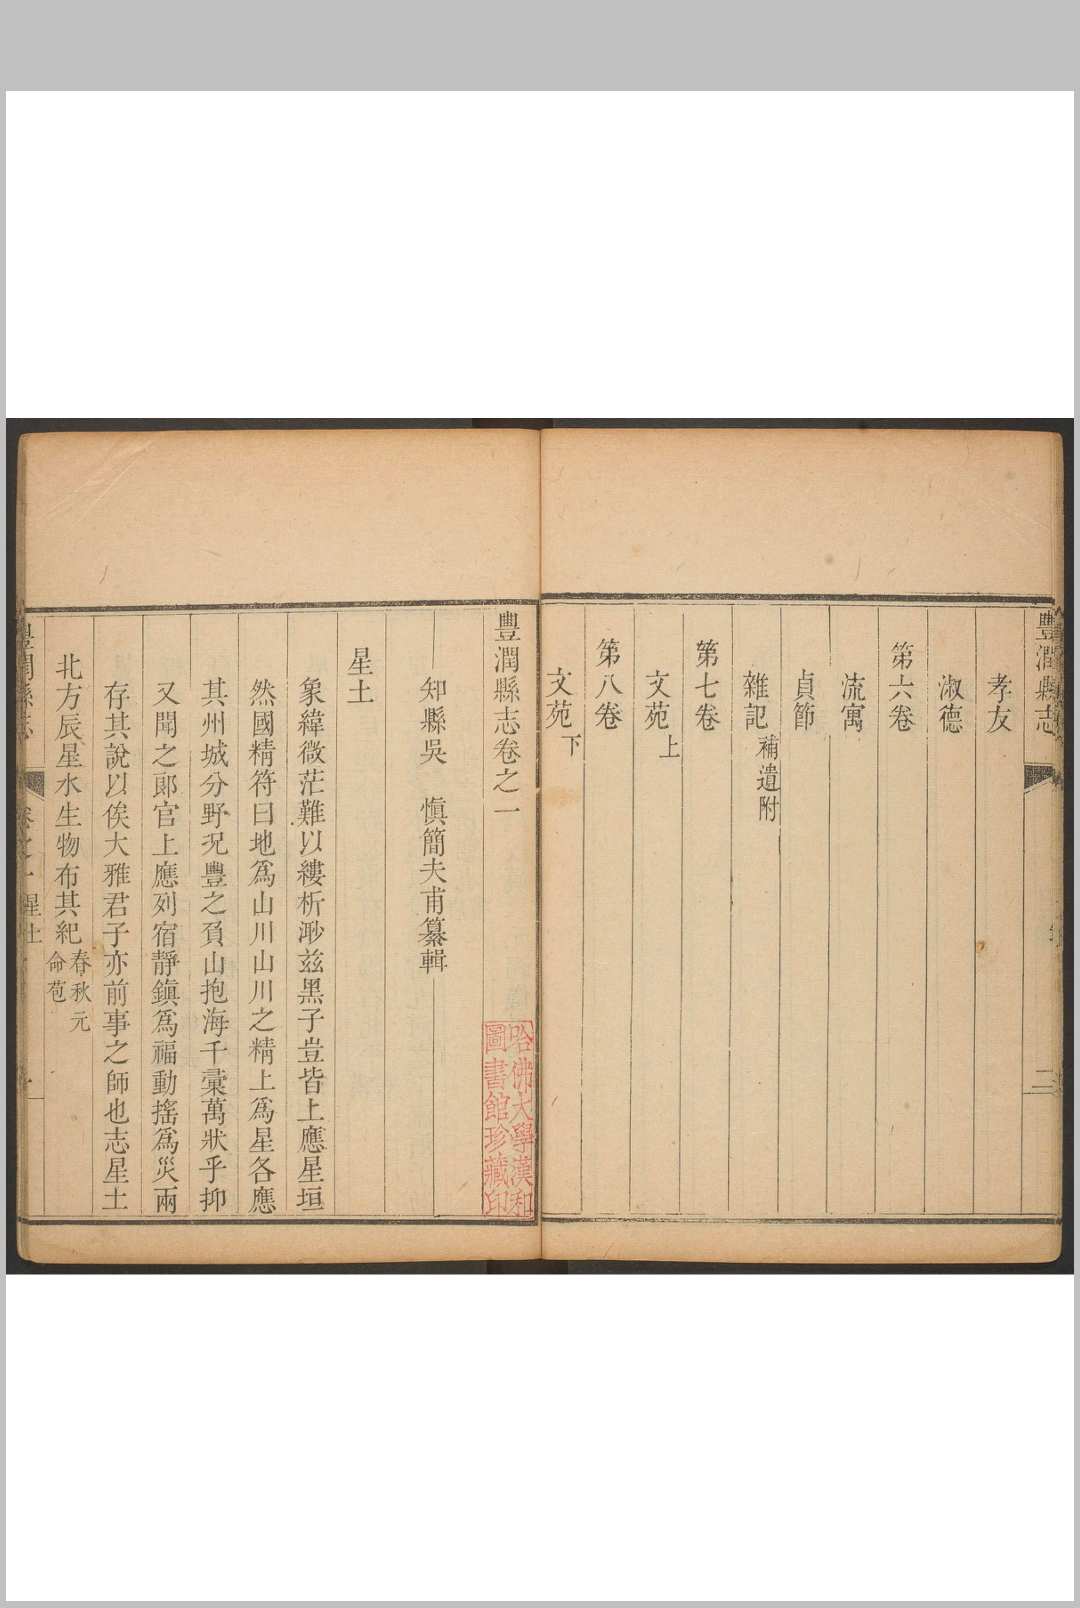 豐潤縣志
二
孝友
淑德
第六卷
流寓
貞節
雜記補遺附
第七卷
文苑上
第八卷
文苑下
豐潤縣志卷之一
哈佛大學漢和
圖書館珍藏印
知縣吳 愼簡夫甫纂輯
星土
象緯微茫難以縷析渺玆黑子豈皆上應星垣
然國精符曰地爲山川山川之精上爲星各應
其州城分野况豐之負山抱海千彙萬狀乎抑
又聞之郞官上應列宿靜鎭爲福動搖爲災兩
存其說以俟大雅君子亦前事之師也志星土
北方辰星水生物布其紀春秋元命苞
豐潤縣志
卷之一 星土
一